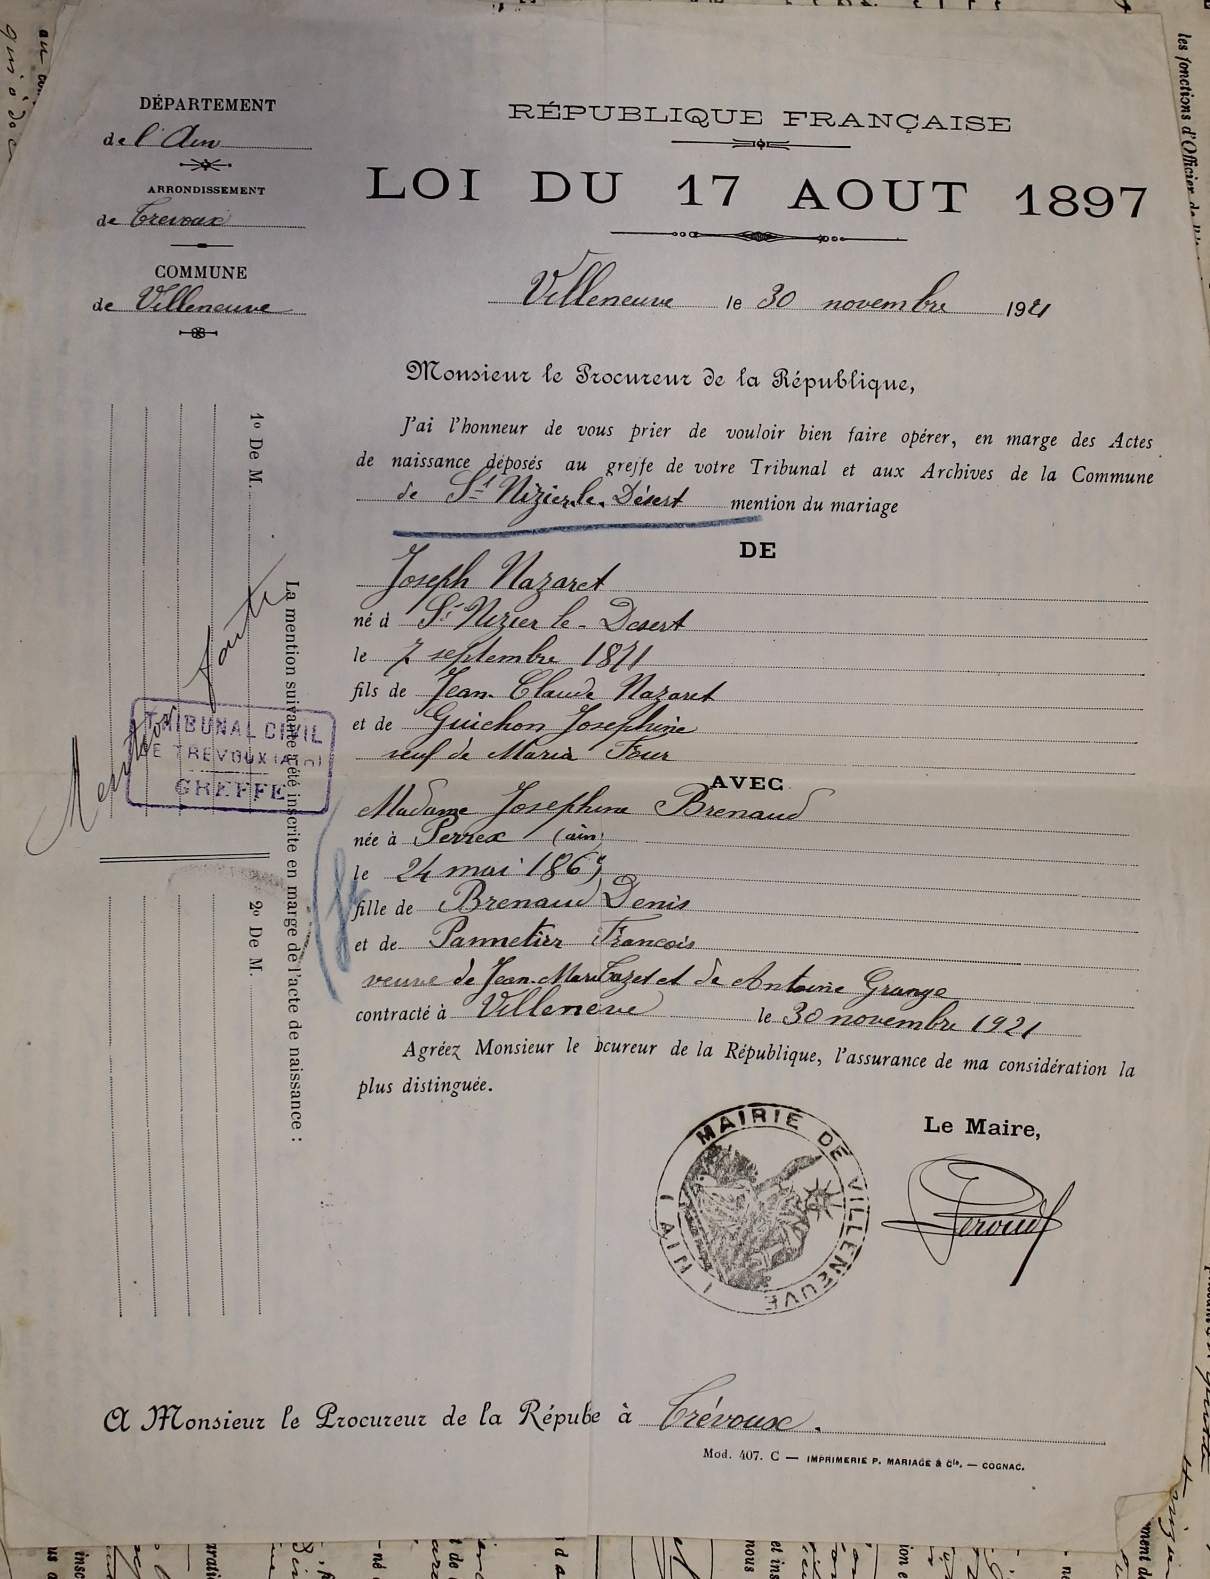 DÉPARTEMENT
de l'Ain
ARRONDISSEMENT
de Trevoux
COMMUNE
de Villeneuve
RÉPUBLIQUE FRANÇAISE
LOI DU 17 AOUT 1897
Villeneuve le 30 novembre 1921
Monsieur le Procureur de la République,
J'ai l'honneur de vous prier de vouloir bien faire opérer, en marge des Actes
de naissance déposés au greffe de votre Tribunal et aux Archives de la Commune
de St Nizier le Désert mention du mariage
DE
Joseph Nazaret
né à St Nizier le Desert
le 7 septembre 1871
fils de Jean Claude Nazaret
et de Guichon Josephine
veuf de Maria Four
AVEC
Madame Josephine Brenaud
née à Perrex (ain)
le 24 mai 1869
fille de Brenaud Denis
et de Pannetier Francois
veuve de Jean Marie et de Antoine Grange
contracté à Villeneve le 30 novembre 1921
Agréez Monsieur le ocureur de la République, l'assurance de ma considération la
plus distinguée.
Le Maire,
MAIRIE DE VILLENEUVE
AIN
La mention suivante a été inscrite en marge de l'acte de naissance :
1º De M.
2º De M.
Mention faite
TRIBUNAL CIVIL
DE TREVOUX (Ain)
GREFFE
A Monsieur le Procureur de la Répube à Trévoux.
Mod. 407. C — IMPRIMERIE P. MARIAGE & Cie. — COGNAC.
les fonctions d'Officier de